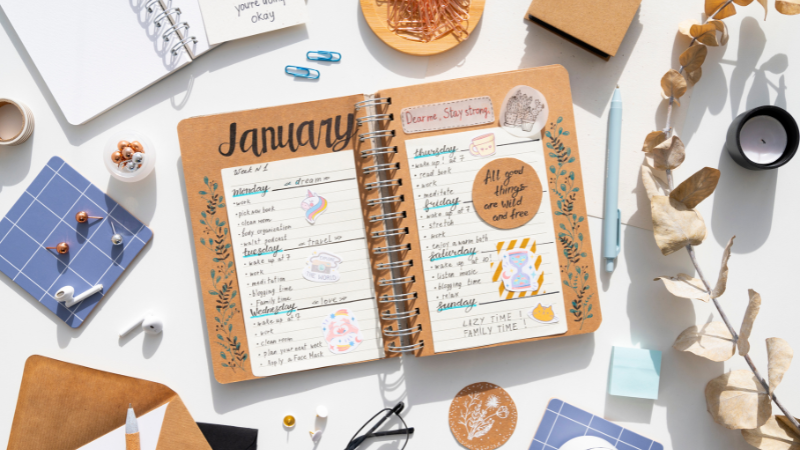 you're doing
okay
January
Week № 1
Monday
dream
• work
• pick new book
• clean room
• body organisation
• waist podcast
Tuesday
travel
• wake up at 7
• work
• meditation
• blogging time
• Family time
Wednesday
love
• wake up at 7
• work
• clean room
• plan your next work
• Apply a Face Mask
Dear me, Stay strong
thursday
• wake up! at 7
• read book
• work
• meditate
friday
• wake up at 7
• stretch
• work
• enjoy a warm bath
saturday
• wake up at 10!
• listen music
• blogging time
• relax
sunday
LAZY TIME!
FAMILY TIME!
All good
things
are wild
and free